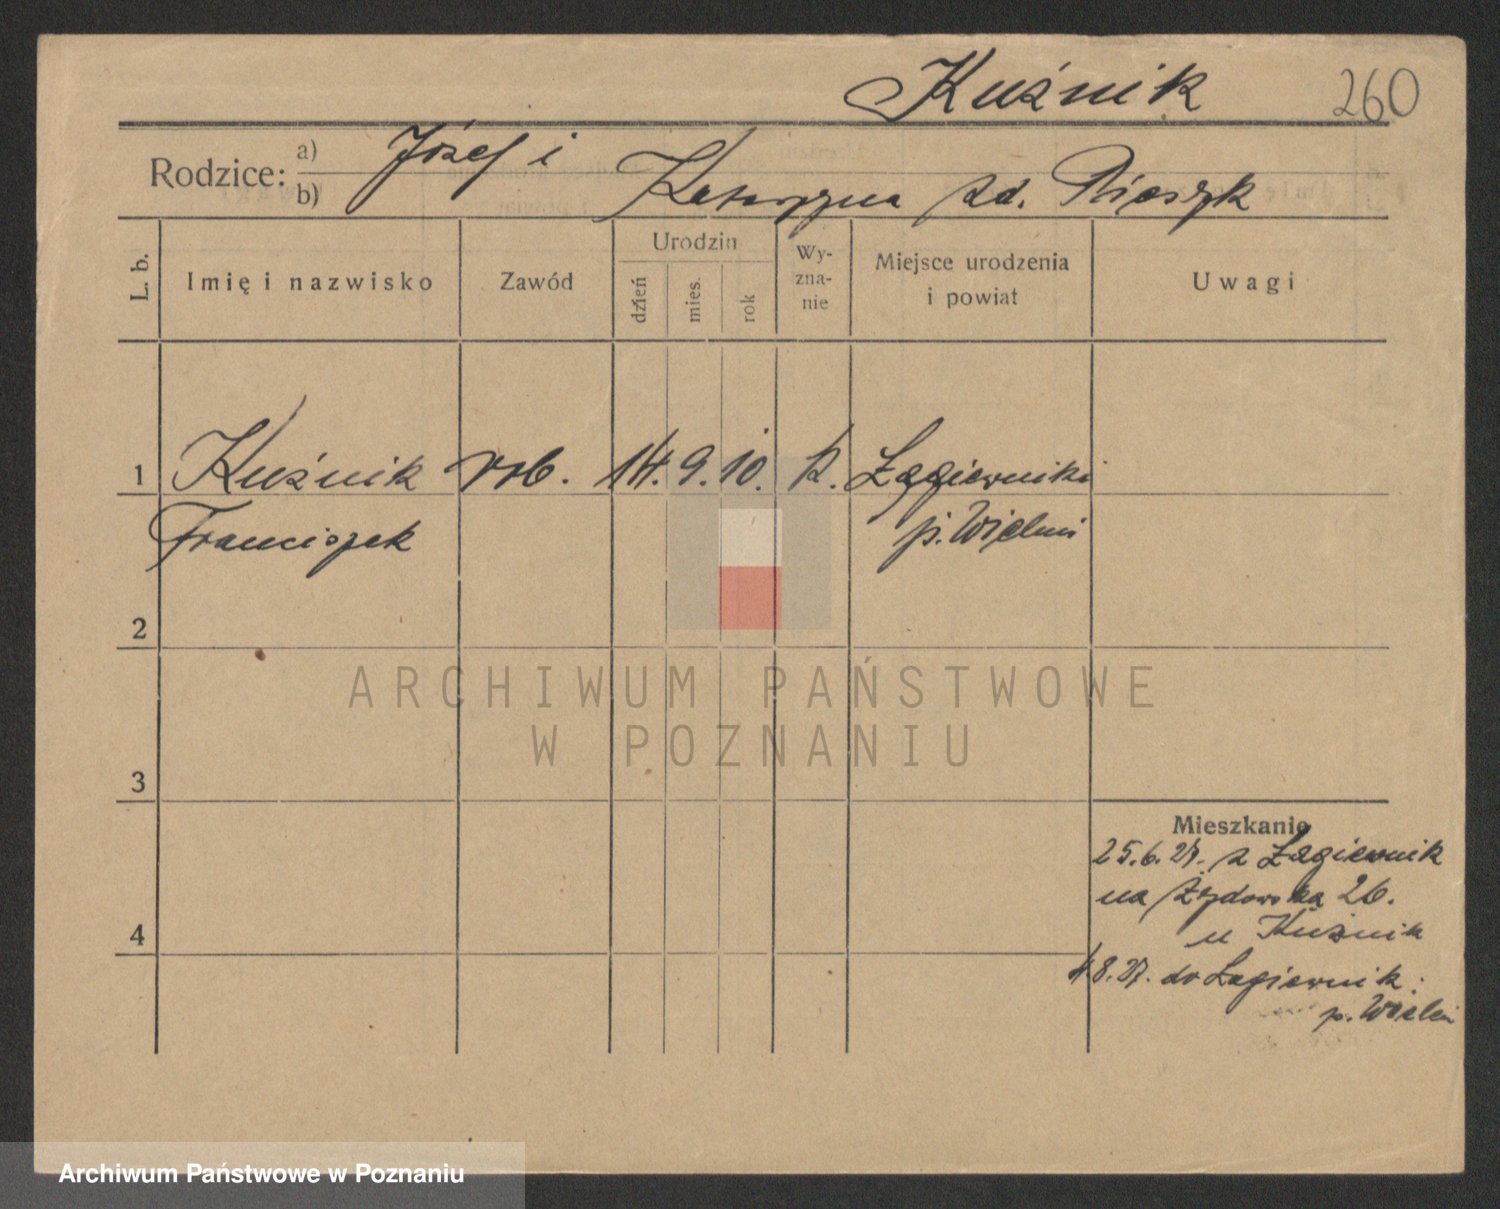 Kuźnik 260
Rodzice: a) Józef i
b) Katarzyna zd.
L. b. Imię i nazwisko Zawód Urodzin dzień mies. rok Wy-zna-nie Miejsce urodzenia i powiat Uwagi
1 Kuźnik rob. 14. 9. 10. k. Łagiewniki
Franciszek p. Wieluń
2
3
4
Mieszkanie
25.6.27. z Łagiewnik
na Żydowska 26.
u Kuźnik
8.27. do Łagiewnik
p. Wieluń
ARCHIWUM PAŃSTWOWE
W POZNANIU
Archiwum Państwowe w Poznaniu